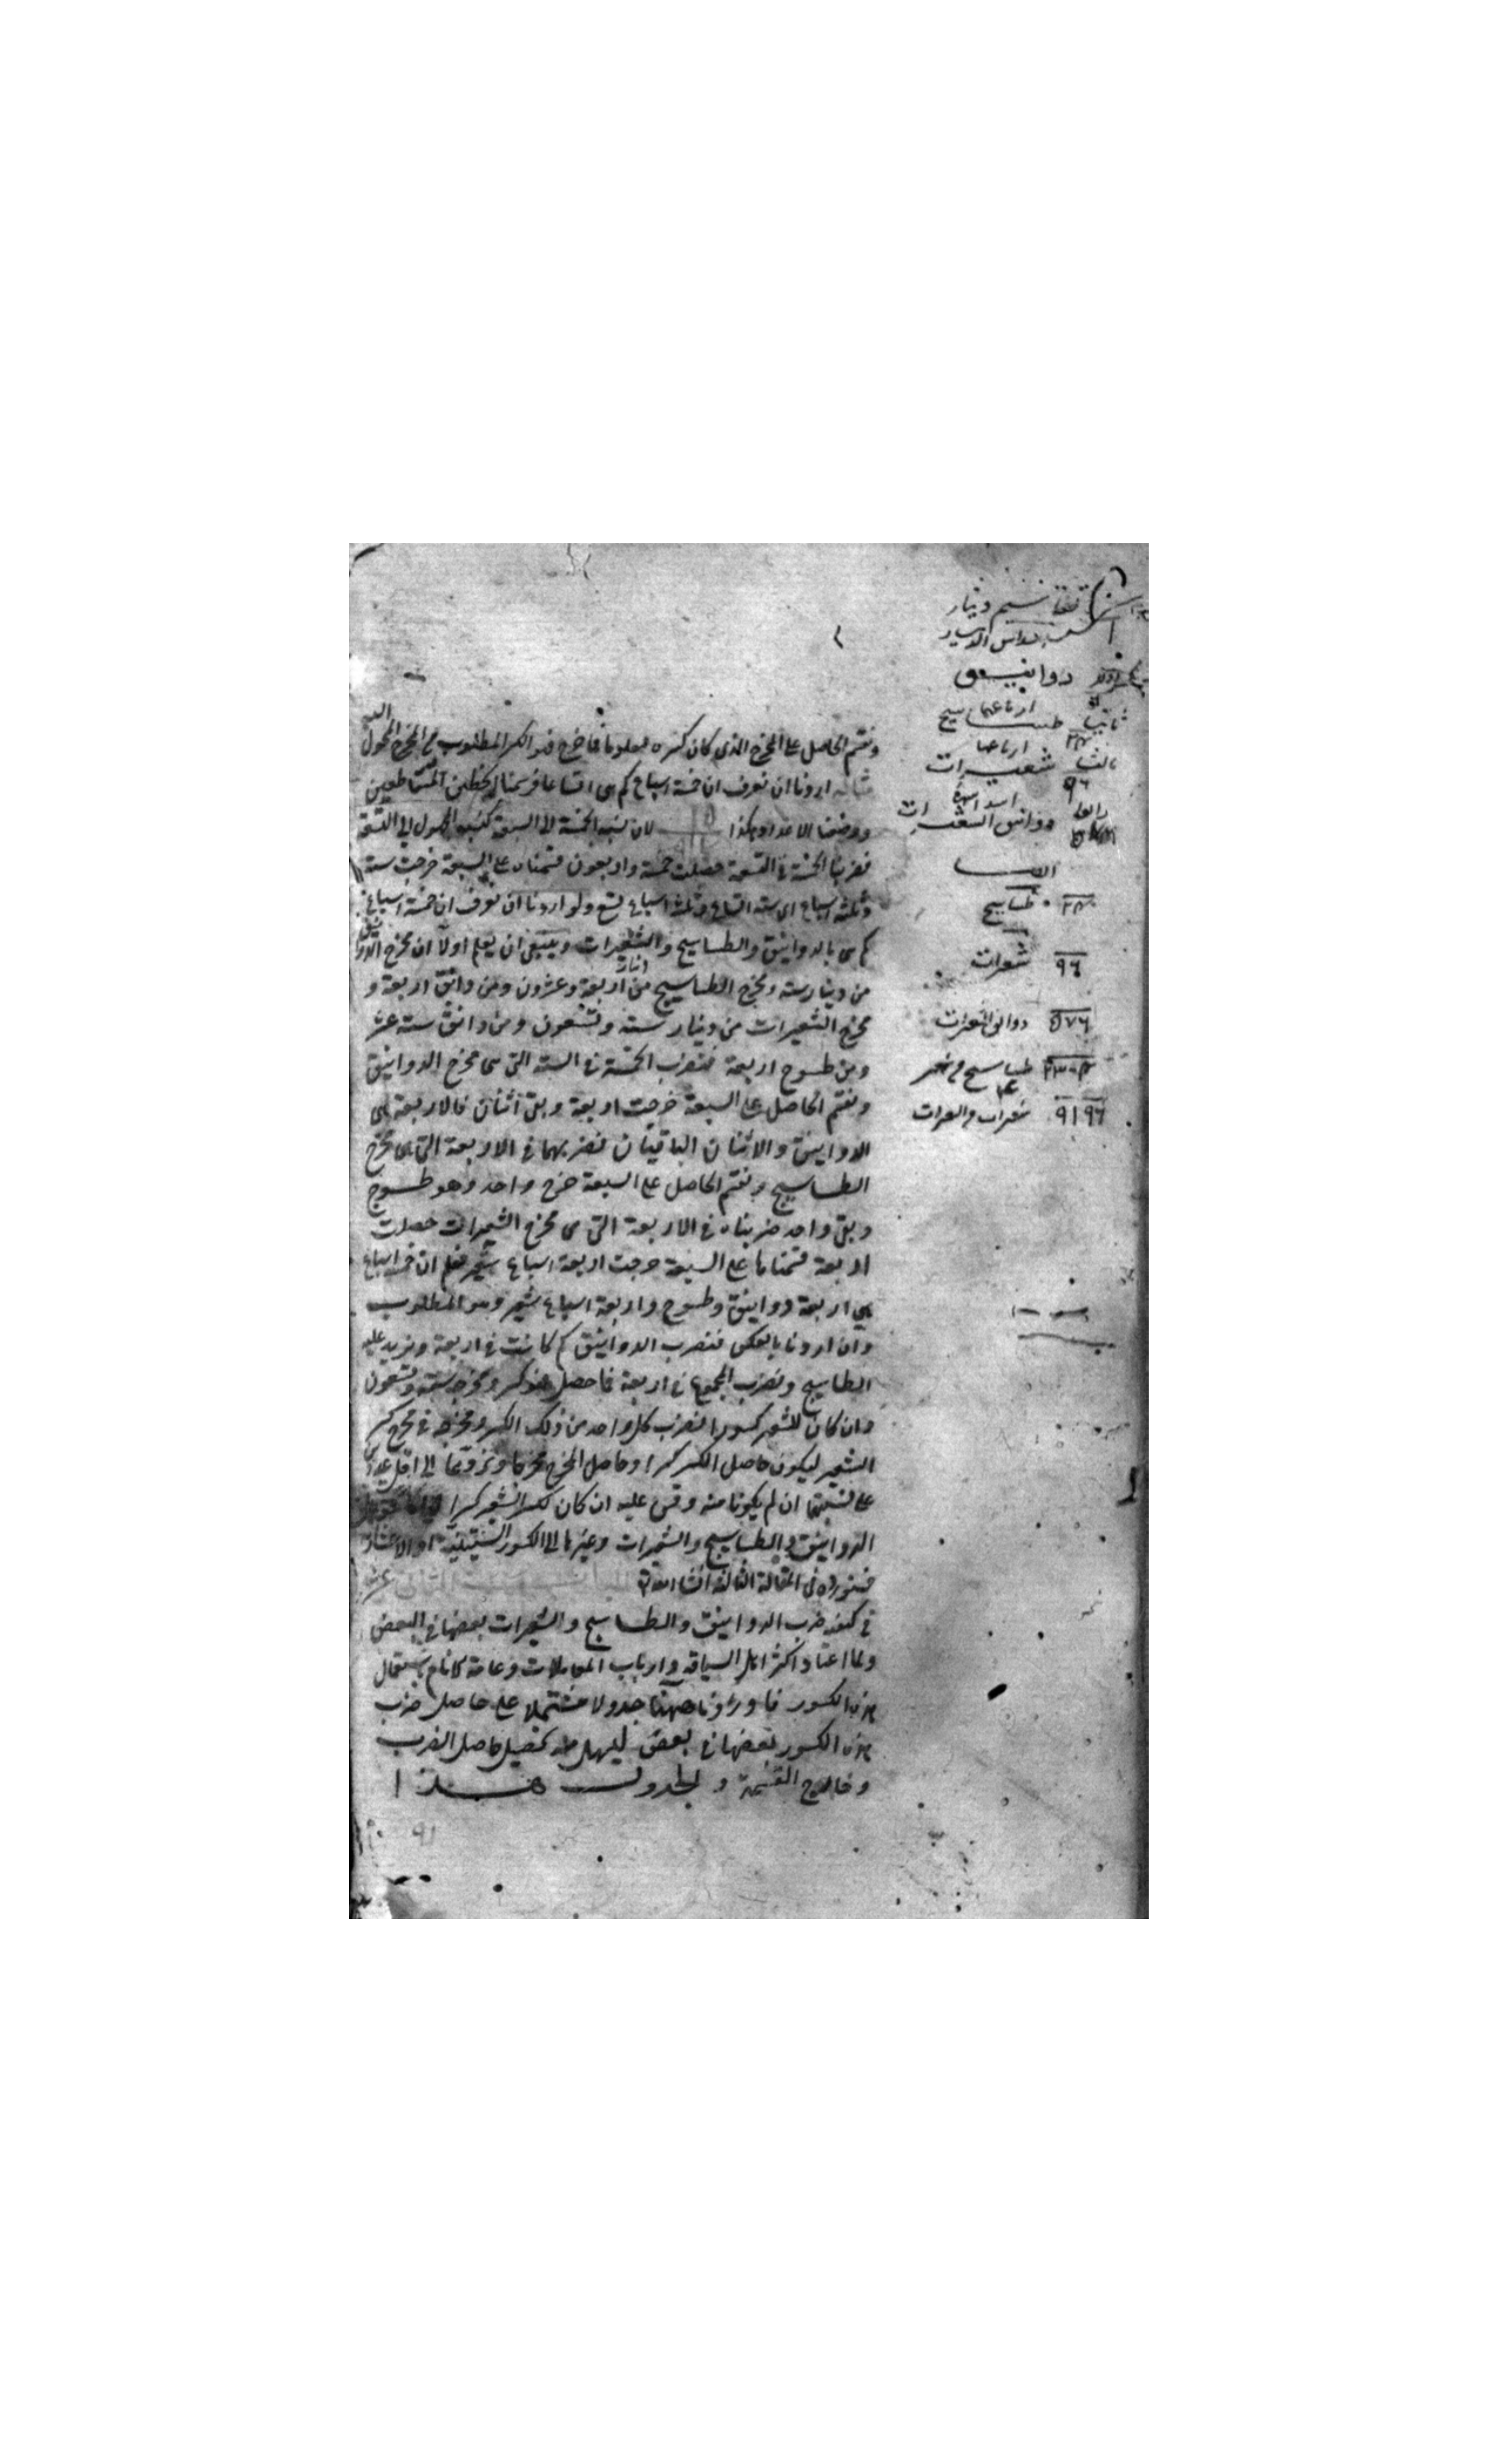 ونقسم الحاصل على المخرج الذى كان كسره معلوما فما خرج فهو الكسر المطلوب من المخرج المحول
اليه
مثاله اردنا ان نعرف ان خمسة اسباع كم هى اتساعا فرسمنا الخطين المتقاطعين
ووضعنا الاعداد هكذا لان نسبة الخمسة الى السبعة كنسبة المجهول الى التسعة
فضربنا الخمسة فى التسعة حصلت خمسة واربعون قسمناه على السبعة خرجت ستة
وثلثة اسباع اى ستة اتساع وثلثة اسباع تسع ولو اردنا ان نعرف ان خمسة اسباع
كم هى بالدوانيق والطساسيج والشعيرات وينبغى ان يعلم اولا ان مخرج الدوانيق
من دينار ستة ومخرج الطساسيج من دينار اربعة وعشرون ومن دانق اربعة و
مخرج الشعيرات من دينار ستة وتسعون ومن دانق ستة عشر
ومن طسوج اربعة فنضرب الخمسة فى الستة التى هى مخرج الدوانيق
ونقسم الحاصل على السبعة خرجت اربعة وبقى اثنان فالاربعة هى
الدوانيق والاثنان الباقيان نضربهما فى الاربعة التى هى مخرج
الطساسيج ونقسم الحاصل على السبعة خرج واحد وهو طسوج
وبقى واحد ضربناه فى الاربعة التى هى مخرج الشعيرات حصلت
اربعة قسمناها على السبعة خرجت اربعة اسباع شعير فعلم ان خمسة اسباع
هى اربعة دوانيق وطسوج واربعة اسباع شعير وهو المطلوب
وان اردنا بالعكس فنضرب الدوانيق كم كانت فى اربعة ونزيد عليه
الطساسيج ونضرب المجموع فى اربعة فما حصل فهو كسر ومخرجه ستة وتسعون
وان كان للشعير كسور نضرب كل واحد من ذلك الكسر ومخرجه فى مخرج كسر
الشعير ليكون حاصل الكسر كسرا وحاصل المخرج مخرجا ونردهما الى اقل عددين
على نسبتهما ان لم يكونا منه وقس عليه ان كان لكسر الشعير كسرا
الدوانيق والطساسيج والشعيرات وغيرها الى الكسور الستينية او الاعشار
فسنورده فى المقالة الثالثة ان شاء الله تع
فى كيفية ضرب الدوانيق والطساسيج والشعيرات بعضها فى البعض
ولما اعتاد اكثر اهل السياقة وارباب المعاملات وعامة الانام باستعمال
هذه الكسور فاوردنا ههنا جدولا مشتملا على حاصل ضرب
هذه الكسور بعضها فى بعض ليسهل منه تحصيل حاصل الضرب
وخارج القسمة والجدول هذا
تقاسيم دينار
دوانيق
ثانيا ارباعها طساسيج
٢٤
ثالثا ارباعها شعيرات
٩٦
رابعا دوانق الشعيرات
٢٤ طساسيج
٩٦ شعيرات
٥٧٦ دوانق الشعيرات
٩٢١٦